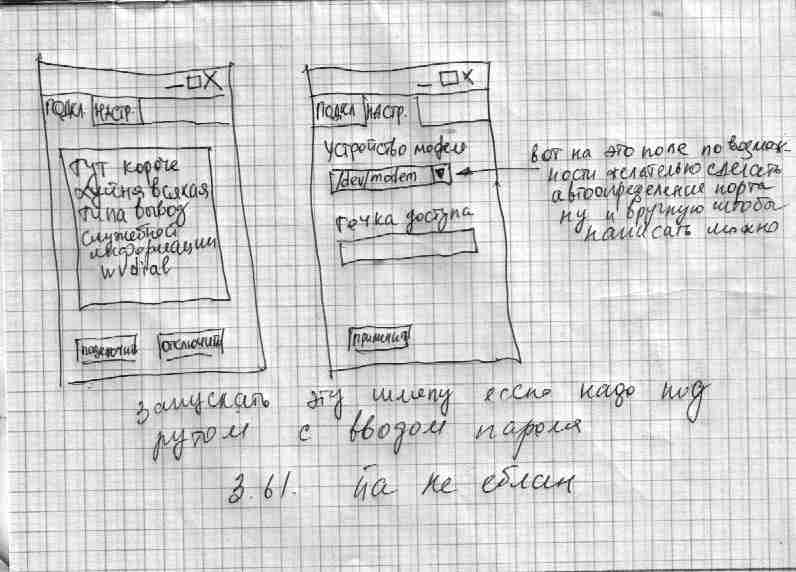 ПОДКЛ. НАСТР.
Тут короче
хуйня всякая
типа вывод
служебной
информации
wvdial
подключить отключить
ПОДКЛ НАСТР.
Устройство модем
/dev/modem
точка доступа
применить
вот на это поле по возмож-
ности желательно сделать
автоопределение порта
ну и вручную штобы
написать можно
Запускать эту шляпу ессно надо под
рутом с вводом пароля
З.Ы. йа не еблан